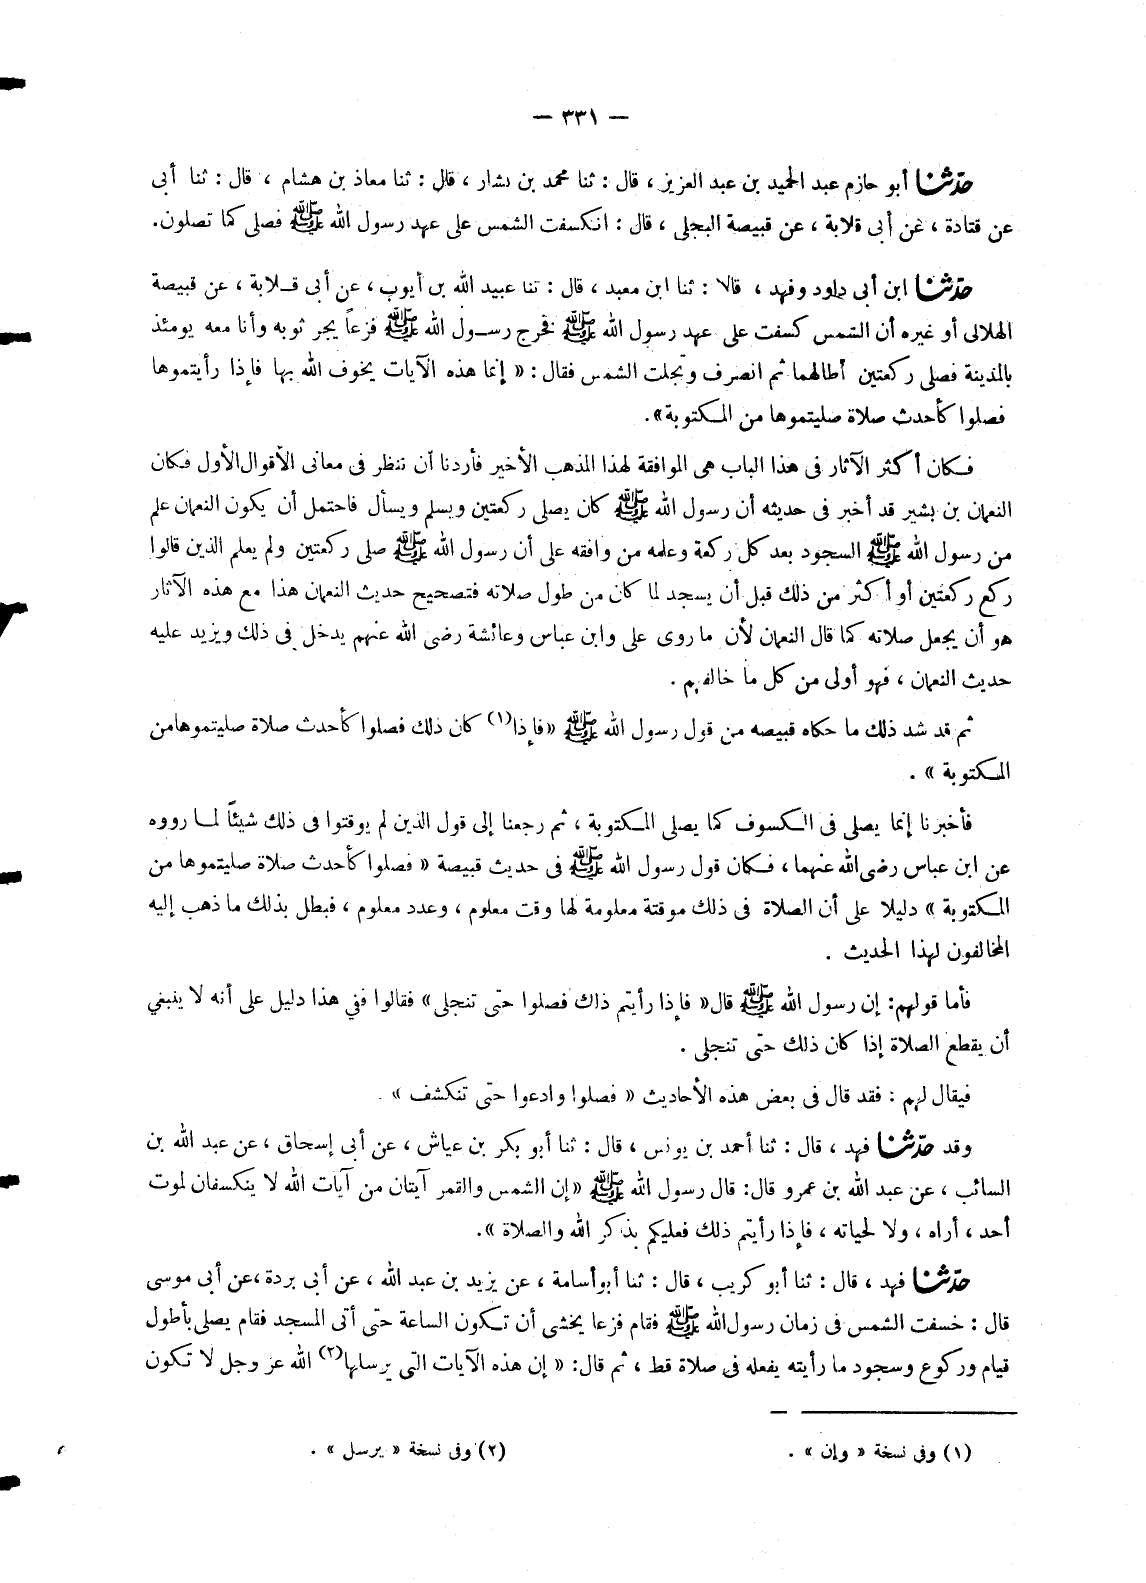 — ٣٣١ —
حدّثنا أبو حازم عبد الحميد بن عبد العزيز ، قال : ثنا محمد بن بشار ، قال : ثنا معاذ بن هشام ، قال : ثنا أبى
عن قتادة ، عن أبى قلابة ، عن قبيصة البجلى ، قال : انكسفت الشمس على عهد رسول الله ﷺ فصلى كما تصلون.
حدّثنا ابن أبى داود وفهد ، قالا : ثنا ابن معبد ، قال : ثنا عبيد الله بن أيوب ، عن أبى قـلابة ، عن قبيصة
الهلالى أو غيره أن الشمس كسفت على عهد رسول الله ﷺ فخرج رسـول الله ﷺ فزعاً يجر ثوبه وأنا معه يومئذ
بالمدينة فصلى ركعتين أطالهما ثم انصرف وتجلت الشمس فقال : « إنما هذه الآيات يخوف الله بها فإذا رأيتموها
فصلوا كأحدث صلاة صليتموها من المـكتوبة».
فـكان أكثر الآثار فى هذا الباب هى الموافقة لهذا المذهب الأخير فأردنا أن ننظر فى معانى الأقوال الأول فكان
النعمان بن بشير قد أخبر فى حديثه أن رسول الله ﷺ كان يصلى ركعتين ويسلم ويسأل فاحتمل أن يكون النعمان علم
من رسول الله ﷺ السجود بعد كل ركعة وعلمه من وافقه على أن رسول الله ﷺ صلى ركعتين ولم يعلم الذين قالوا
ركع ركعتين أو أكثر من ذلك قبل أن يسجد لما كان من طول صلاته فتصحيح حديث النعمان هذا مع هذه الآثار
هو أن يجعل صلاته كما قال النعمان لأن ما روى على وابن عباس وعائشة رضى الله عنهم يدخل فى ذلك ويزيد عليه
حديث النعمان ، فهو أولى من كل ما خالفهم .
ثم قد شد ذلك ما حكاه قبيصه من قول رسول الله ﷺ «فإذا(١) كان ذلك فصلوا كأحدث صلاة صليتموها من
المـكتوبة » .
فأخبرنا إنما يصلى فى الـكسوف كما يصلى المـكتوبة ، ثم رجعنا إلى قول الذين لم يوقتوا فى ذلك شيئاً لمـا رووه
عن ابن عباس رضى الله عنهما ، فـكان قول رسول الله ﷺ فى حديث قبيصة « فصلوا كأحدث صلاة صليتموها من
المـكتوبة » دليلا على أن الصلاة فى ذلك موقتة معلومة لها وقت معلوم ، وعدد معلوم ، فبطل بذلك ما ذهب إليه
المخالفون لهذا الحديث .
فأما قولهم: إن رسول الله ﷺ قال« فإذا رأيتم ذاك فصلوا حتى تنجلى» فقالوا ففي هذا دليل على أنه لا ينبغي
أن يقطع الصلاة إذا كان ذلك حتى تنجلى .
فيقال لهم : فقد قال فى بعض هذه الأحاديث « فصلوا وادعوا حتى تنكشف » .
وقد حدّثنا فهد ، قال : ثنا أحمد بن يونس ، قال : ثنا أبو بكر بن عياش ، عن أبى إسحاق ، عن عبد الله بن
السائب ، عن عبد الله بن عمرو قال: قال رسول الله ﷺ «إن الشمس والقمر آيتان من آيات الله لا ينكسفان لموت
أحد ، أراه ، ولا لحياته ، فإذا رأيتم ذلك فعليكم بذكر الله والصلاة ».
حدّثنا فهد ، قال : ثنا أبو كريب ، قال : ثنا أبو أسامة ، عن يزيد بن عبد الله ، عن أبى بردة ،عن أبى موسى
قال : خسفت الشمس فى زمان رسول الله ﷺ فقام فزعا يخشى أن تـكون الساعة حتى أتى المسجد فقام يصلى بأطول
قيام وركوع وسجود ما رأيته يفعله فى صلاة قط ، ثم قال: « إن هذه الآيات التى يرسلها(٢) الله عز وجل لا تكون
(١) وفى نسخة « وإن » .
(٢) وفى نسخة « يرسل » .